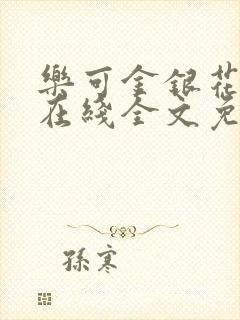 樂可金銀花
在綫全文免
孫寒